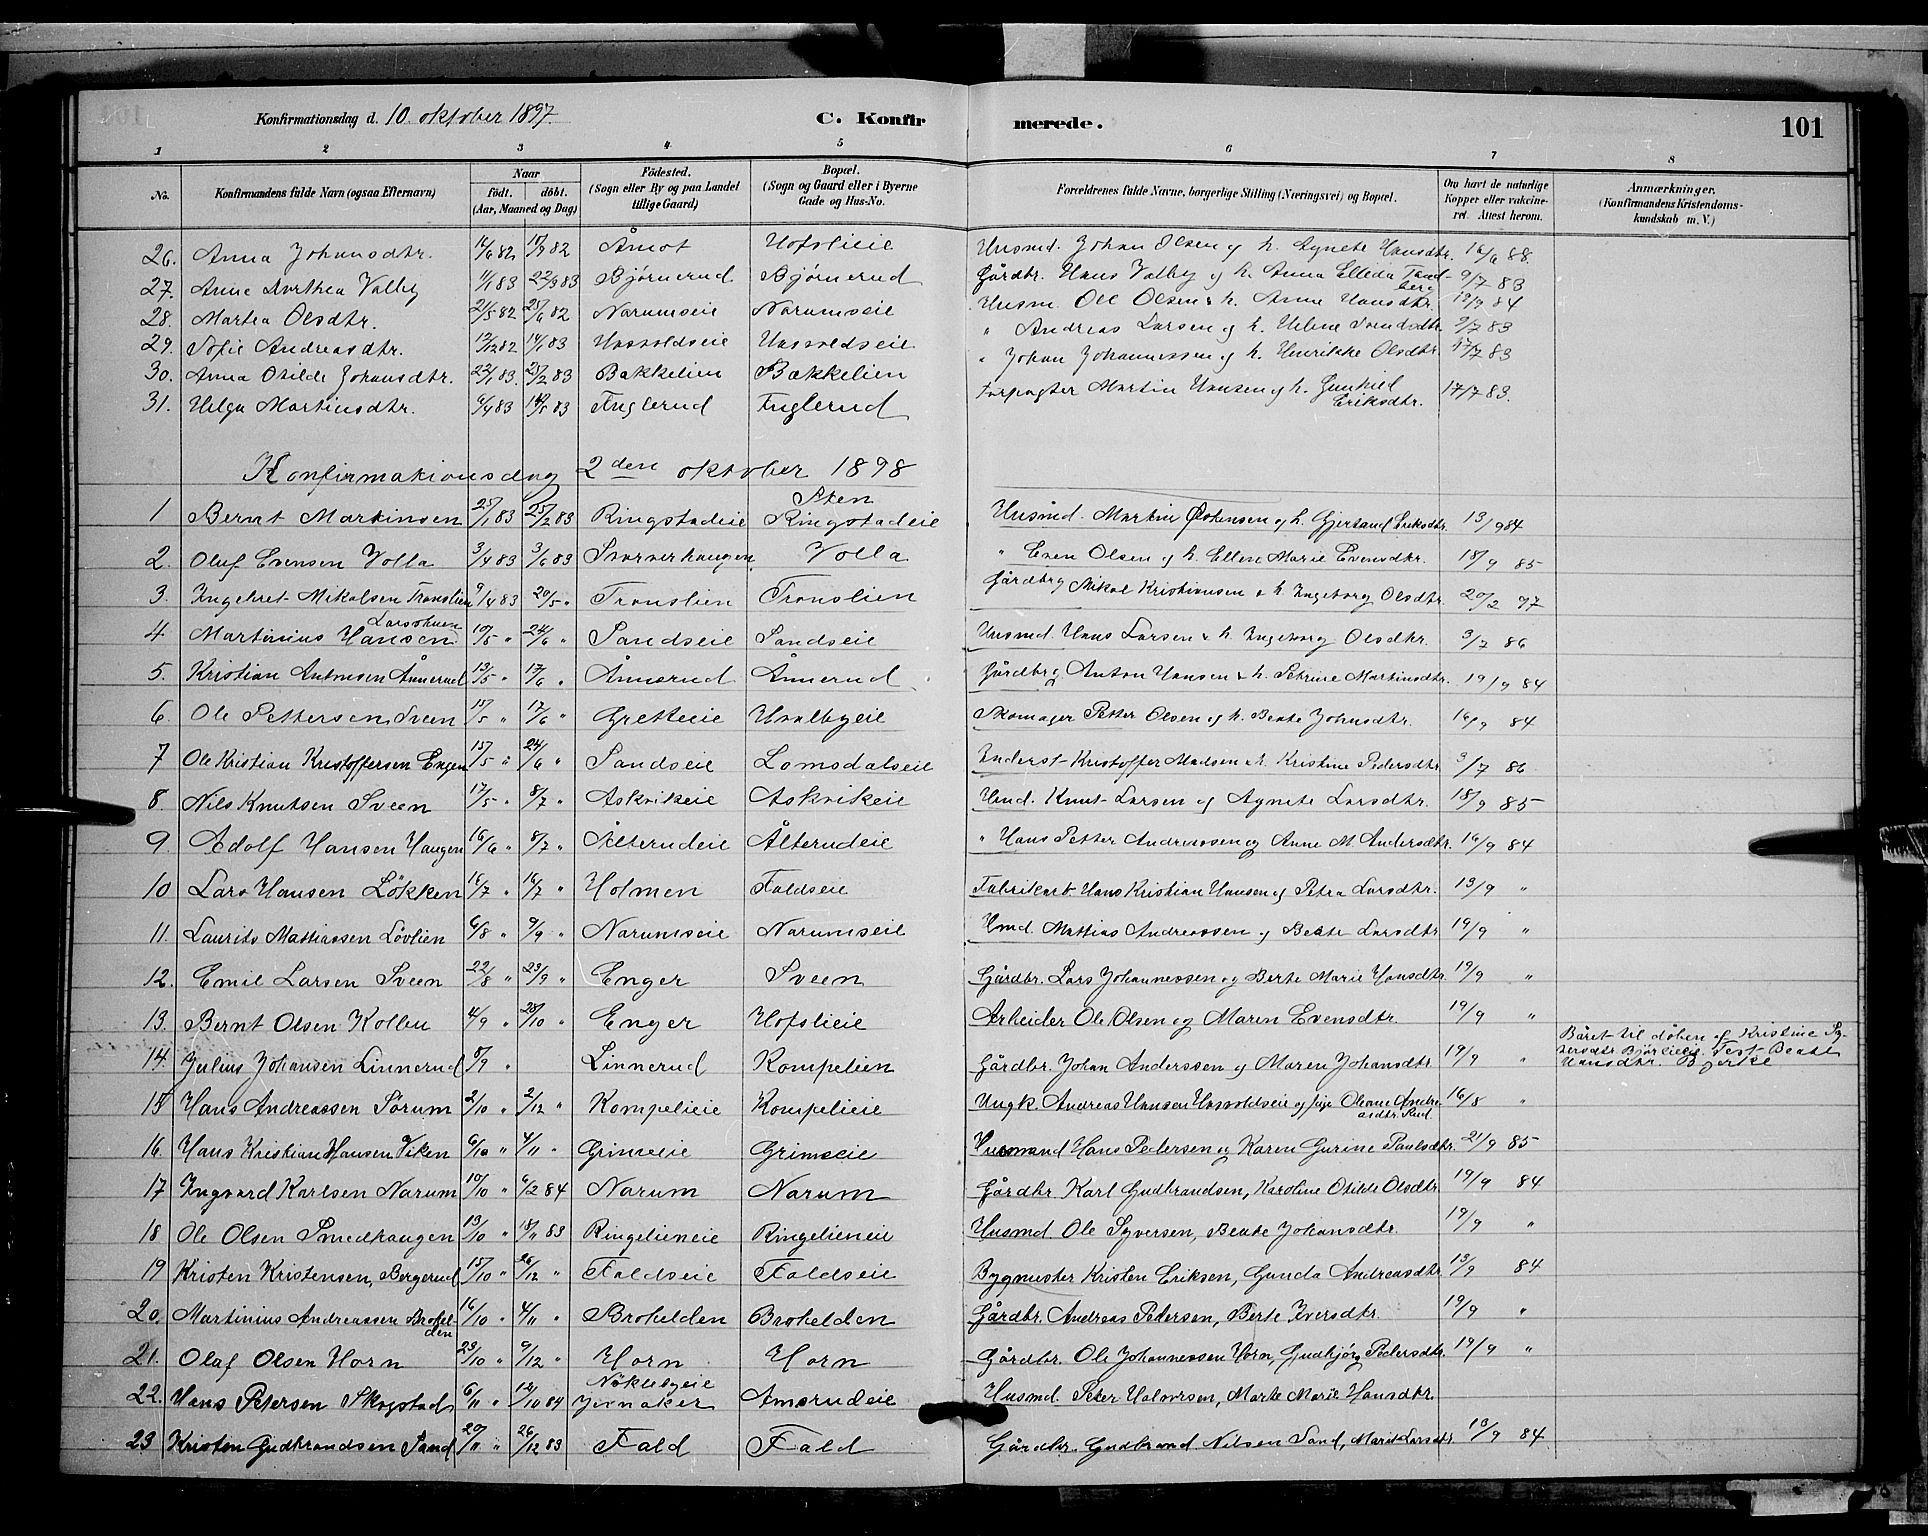 Konfirmationsdag d. 10. oktober 1897. C. Konfirmerede. 101
1 2 3 4 5 6 7 8
No. Konfirmandens fulde Navn (ogsaa Efternavn) Naar født. døbt. (Aar, Maaned og Dag) Fødested. (Sogn eller By og paa Landet tillige Gaard) Bopæl. (Sogn og Gaard eller i Byerne Gade og Hus-No. Forældrenes fulde Navne, borgerlige Stilling (Næringsvei) og Bopæl. Om havt de naturlige Kopper eller vakcineret. Attest herom. Anmærkninger. (Konfirmandens Kristendomskundskab m. V.)
26. Anna Johansdtr. Åmot Hofslieie Husmd. Johan Olsen og h. Agnete Hansdtr. 16/6 88.
27. Anne Dorthea Valby 11/1 83 22/3 83 Bjørnerud Bjørnerud Gårdbr. Hans Valby og h. Anna Elleda Tandberg 9/7 83
28. Martea Olsdtr. 21/5 82 25/6 82 Narumseie Narumseie Husm. Ole Olsen & h. Anne Hansdtr. 19/9 84
29. Sofie Andreasdtr. 12/12 82 14/1 83 Hasvoldseie Hasvoldseie " Andreas Larsen og h. Helene 9/7 83
30. Anna Otilde Johansdtr. 22/1 83. 25/2 83 Bakkelien Bakkelien " Johan Johannessen og h. Henrikke Olsdtr. 17/7 83
31. Helga Martinsdtr. 4/4 83 14/5 83 Fuglerud Fuglerud Forpagter Martin Hansen og h. Gunhild Eriksdtr. 17/7 83.
Konfirmationsdag 2den oktober 1898
1 Bernt Martinsen 25/1 83 25/2 83 Ringstadeie Sten Ringstadeie Husmd. Martin Østensen og h. Gjertrud Eriksdtr. 13/9 84
2. Oluf Evensen Volla 3/4 83 3/6 83 Svarverhaugen Volla " Even Olsen og h. Ellen Marie Evensdtr. 18/9 85
3. Ingebret Mikalsen Tronslien 9/4 83 20/5 " Tronslien Tronslien Gårdbrg Mikal Kristiansen & h. Ingeborg Olsdtr. 20/2 97
4 Martinius Hansen 10/5 " 24/6 " Sandseie Sandseie Husmd. Hans Larsen & h. Ingeborg Olsdtr. 3/7 86
5. Kristian Antonsen Ånnerud 13/5 " 17/6 " Ånnerud Ånnerud Gårdbrg Anton Hansen & h. Petrine Martinsdtr. 19/9 84
6. Ole Pettersen Sveen 15/5 " 17/6 " Gretteeie Hvalbyeie Skomager Petter Olsen og h. Beate Johnsdtr. 16/9 84
7 Ole Kristian Kristoffersen Engen 15/5 " 24/6 " Sandseie Lomsdalseie Inderst Kristoffer Madsen & h. Kristine Pedersdtr. 3/7 86
8. Nils Knutsen Sveen 17/5 " 8/7 " Askvikeie Askvikeie Hmd. Knut Larsen og Agnete Larsdtr. 18/9 85
9. Adolf Hansen Haugen 16/6 " 8/7 " Ålterudeie Ålterudeie " Hans Petter Andreassen og Anne M. Andersdtr. 16/9 84
10 Lars Hansen Løkken 16/7 " Holmen Faldseie Fabrikarb. Hans Kristian Hansen og Petra Larsdtr. 13/9 "
11. Laurits Mattiassen Løvlien 6/8 " 9/9 " Narumseie Narumseie Hmd. Mattias Andreassen og Beate Larsdtr 19/9 "
12. Emil Larsen Sveen 22/8 " 23/9 " Enger Sveen Gårdbr. Lars Johannessen og Berte Marie Hansdtr. 19/9 "
13. Bernt Olsen Kolbu 4/9 " 28/10 " Enger Hofslieie Arbeider Ole Olsen og Maren Evensdtr. 19/9 "
14. Julius Johansen Linnerud 5/9 " Linnerud Kompelien Gårdbr. Johan Anderssen og Maren Johansdtr. 19/9 " Båret til dåben af Kristine Syversdtr Test Beate Hansdtr. Bjerke
15 Hans Andreassen Sørum 2/10 " 2/12 " Kompelieie Kompelieie Ungk. Andreas Hansen Hasvoldseie og pige Oleane Andreasdtr. Rud 16/8 "
16. Hans Kristian Hansen Viken 6/10 " 4/11 " Grimeie Grimeie Husmand Hans Pedersen og Karen Gurine Paulsdtr. 21/9 85
17 Ingvard Karlsen Narum 10/10 " 6/2 84 Narum Narum Gårdbr. Karl Gudbrandsen, Karoline Otilde Olsdtr. 19/9 84
18 Ole Olsen Smedhaugen 13/10 " 18/11 83 Ringelieneie Ringelieneie Husmd Ole Syversen, Beate Johansdtr. 19/9 "
19 Kristen Kristensen, Bergerud 15/10 " 26/12 " Faldseie Faldseie Bygmester Kristen Eriksen, Gunda Andreasdtr 13/9 84
20. Martinius Andreassen Brohelden 16/10 " 4/11 " Brohelden Brohelden Gårdbr. Andreas Pedersen, Berte Iversdtr. 19/9 "
21. Olaf Olsen Horn 23/10 " 9/12 " Horn Horn Gårdbr. Ole Johannessen Horn, Gudbjørg Pedersdtr. 19/9 "
22. Hans Petersen Skogstad 6/11 " 12/10 84 Nøklebyeie Jevnaker Amsrudeie Husmd. Peter Halvorsen, Marte Marie Hansdtr.
23 Kristen Gudbrandsen Sand 20/11 " 26/12 83 Fald Fald Gårdbr. Gudbrand Nilsen Sand, Marit Larsdtr 13/9 84